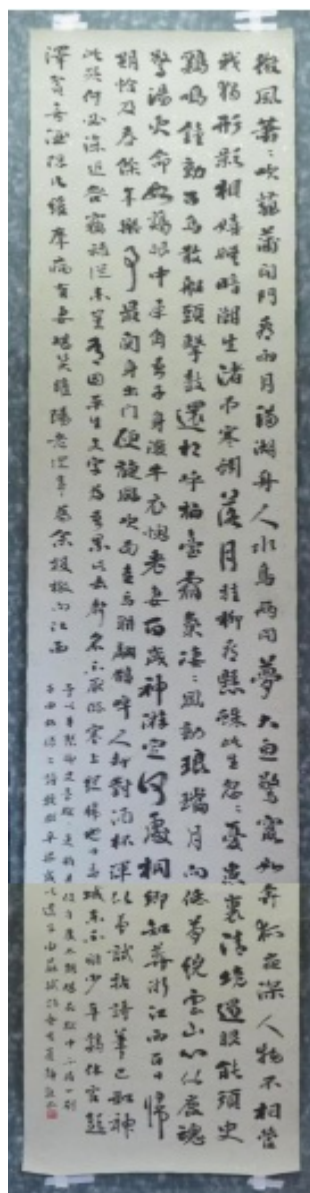 微風蕭〻吹菰蒲開門看雨月滿湖舟人水鳥兩同夢大魚驚竄如奔狐夜深人物不相管
我獨形影相嬉娛暗潮生渚弔寒蚓落月挂柳看懸蛛此生忽〻憂患裏清境過眼能須臾
鷄鳴鐘動百鳥散船頭擊鼓還相呼柏臺霜氣凄〻風動琅璫月向低夢繞雲山心似鹿魂
驚湯火命如鷄眼中犀角真吾子身後牛衣愧老妻百歲神游定何處桐鄉知葬浙江西百日歸
期恰及春餘年樂事最關身出門便旋風吹面走馬聯翩鵲啅人却對酒杯渾似夢試拈詩筆已如神
此災何必深追咎竊祿從來豈有因平生文字為吾累此去聲名不厭低塞上縱歸他日馬城東不鬥少年鷄休官彭
澤貧無酒隱几維摩病有妻堪笑睢陽老從事為余投檄向江西
予以事繫御史臺獄吏稍見侵自度不能堪死獄中不得一別
子由故作二詩授獄卒梁成以遺子由蘇軾詩